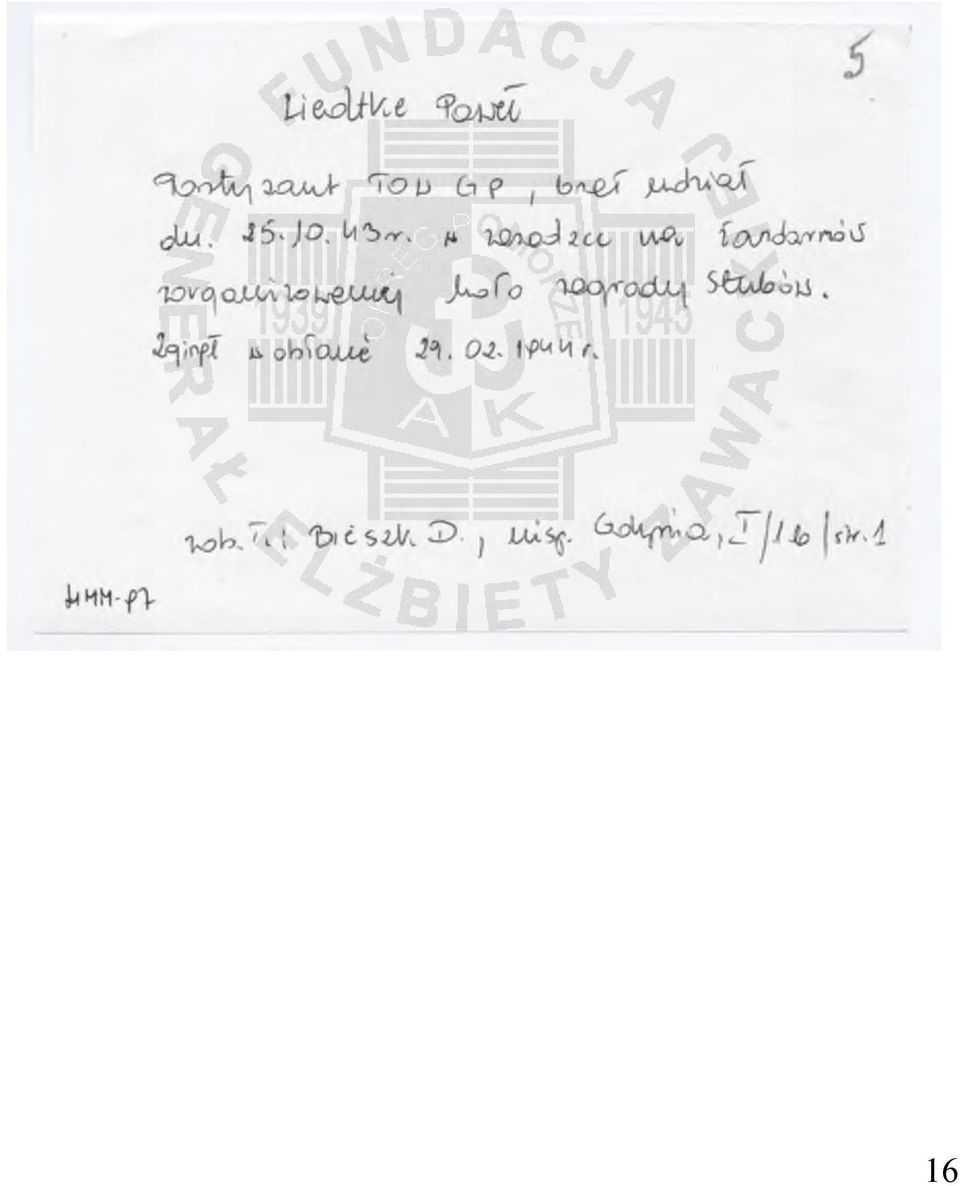 5
Liedtke Paweł
Partyzant TOW GP, brał udział
dn. 25.10.43r. w zasadzce na żandarmów
zorganizowanej koło zagrody Stubów.
Zginął w obławie 29.02.1944r.
zob. T.: Bieszk D., Gdynia, I/16/str.1
HMM-97
FUNDACJA GENERAŁ ELŻBIETY ZAWACKIEJ
OKRĘG POMORZE
1939 1945
AK
16